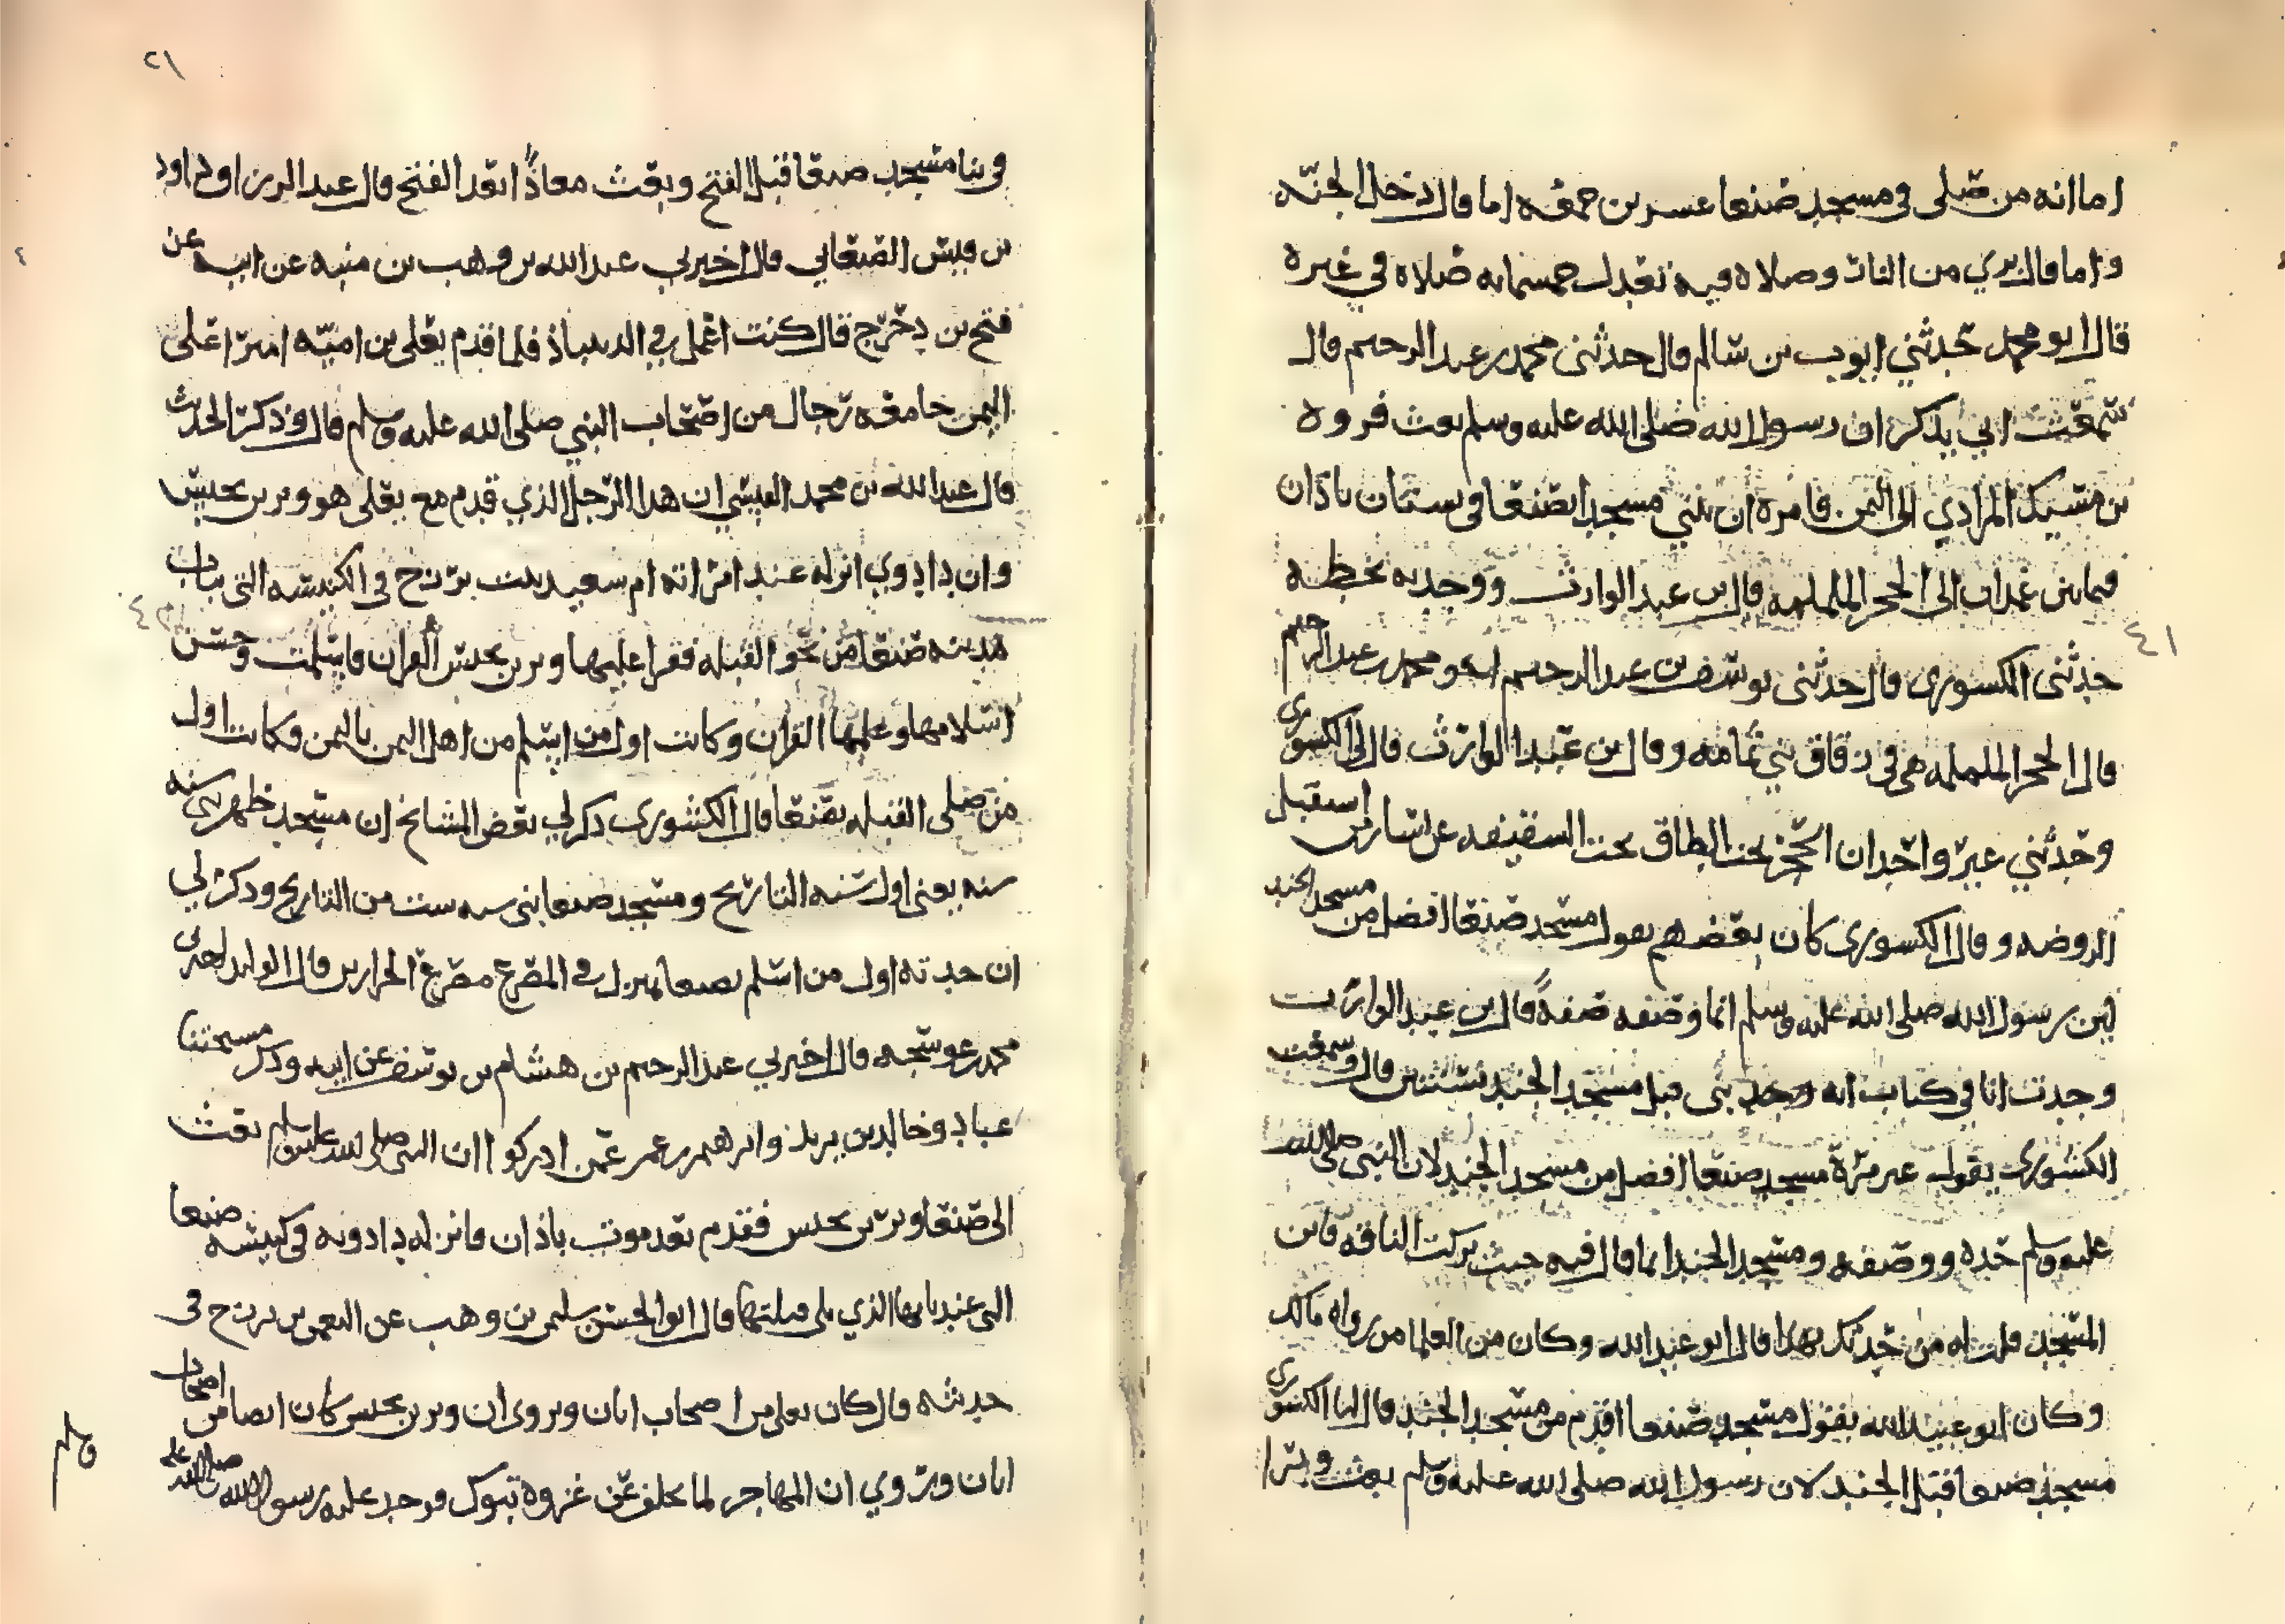 اما انه من صلى في مسجد صنعا عشرين جمعه اما قال دخل الجنه
واما قال بري من النار وصلاه فيه تعدل خمسمايه صلاه في غيره
قال ابو محمد حدثني ايوب بن سالم قال حدثني محمد بن عبد الرحيم قال
سمعت ابي يذكر ان رسول الله صلى الله عليه وسلم بعث فروه
بن مسيك المرادي الى اليمن فامره ان يبني مسجد صنعا في بستان باذان
فيما بين غمدان الى الحجر الململمه قال بن عبد الوارث ووجدته بخطه
حدثني الكشوري قال حدثني يوسف بن عبد الرحيم اخو محمد بن عبد الرحيم
قال الحجر الململمه هي في زقاق بني ثمامه وقال بن عبد الوارث قال لي الكشوري
وحدثني غير واحد ان الحجر تحت الطاق تحت السقيفه عن يسار من استقبل
الروضه وقال الكشوري كان بعضهم يقول مسجد صنعا افضل من مسجد الجند
لين رسول الله صلى الله عليه وسلم انما وصفه صفة قال بن عبد الوارث
وجدت انا في كتاب انه وجد بنى قبل مسجد الجند بسنتين قال وسمعت
الكشوري يقول غير مرة مسجد صنعا افضل من مسجد الجند لان النبي صلى الله
عليه وسلم حده ووصفه ومسجد الجند انما قال فيه حيث بركت الناقه فابن
المسجد قلت له من حدثك بهذا قال ابو عبد الله وكان من العلما من رواه مالك
وكان ابو عبيد الله يقول مسجد صنعا اقدم من مسجد الجند قال لنا الكشوري
مسجد صنعا قبل الجند لان رسول الله صلى الله عليه وسلم بعث وبرا
٤١
٢١
في بنا مسجد صنعا قبل الفتح وبعث معاذا بعد الفتح قال عبد الرزاق داود
بن قيس الصنعاني قال اخبرني عبد الله بن وهب بن منبه عن ابيه عن
فتح بن دحرج قال كنت اعمل في الدينباذ فلما قدم يعلى بن اميه امير اعلى
اليمن جا معه رجال من اصحاب النبي صلى الله عليه وسلم قال وذكر الحديث
قال عبد الله بن محمد العبسي ان هذا الرجل الذي قدم مع يعلى هو وبر بن يحنس
وان دادوي انزله عند امراته ام سعيد بنت بزرج في الكنيسه التي بباب
مدينه صنعا من نحو القبله فقرا عليها وبر بن يحنس القران فاسلمت وحسن
اسلامها وعلمها القران وكانت اول من اسلم من اهل اليمن باليمن وكانت اول
من صلى القبله بصنعا قال الكشوري ذكر لي بعض المشائخ ان مسجد ظهر بني سنه
سنه يعني اول سنه التاريخ ومسجد صنعا بني سنه ست من التاريخ وذكر لي
ان جدته اول من اسلم بصنعا بمنزل في المصرع مصرع الخرازين قال الوليد لعدني
محمد بن عوسجه قال اخبرني عبد الرحيم بن هشام بن يوسف عن ابيه وذكر مسيختنا
عباد وخالد بن يزيد وابرهيم بن عمر عمن ادركوا ان النبي صلى الله عليه وسلم بعث
الى صنعا وبر بن يحنس فقدم بعد موت باذان فانزله دادويه في كنيسه صنعا
التي عند بابها الذي يلي قبلتها قال ابو الحسن سليمن بن وهب عن النعمن بن بزرج في
حديثه قال كان يعلى من اصحاب ابان ويروى ان وبر بن يحنس كان ايضا من اصحاب
ابان ويروي ان المهاجر لما تخلف عن غزوة تبوك فوجد عليه رسول الله صلى الله عليه
وسلم